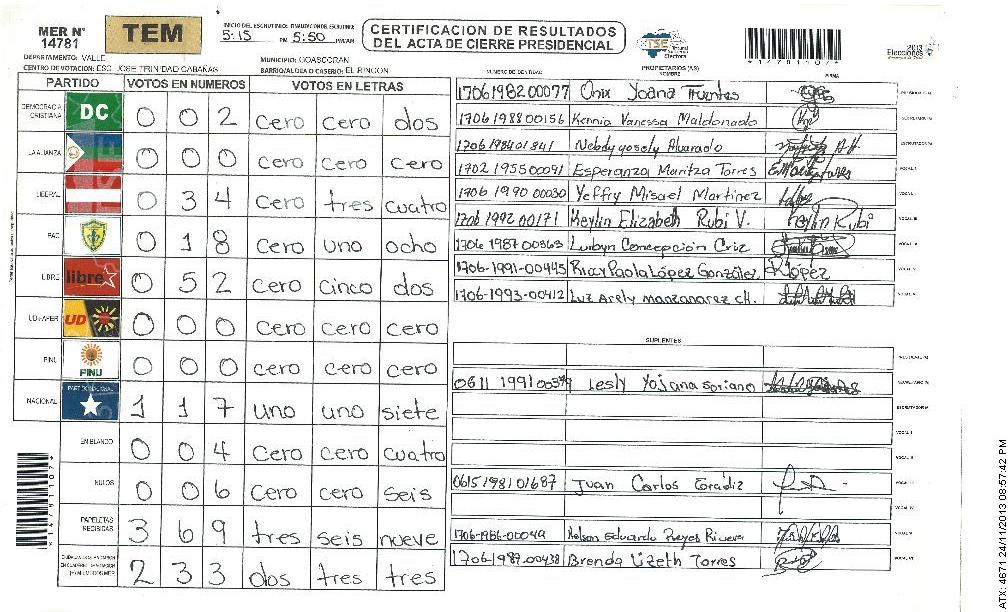 MER N° 14781
TEM
INICIO DEL ESCRUTINIO: FINALIZACION DE ESCRUTINIO:
5:15 PM 5:50 PM/AM
CERTIFICACION DE RESULTADOS
DEL ACTA DE CIERRE PRESIDENCIAL
TSE Tribunal Supremo Electoral
2013
Elecciones
*1478110?*
DEPARTAMENTO: VALLE
MUNICIPIO: GOASCORAN
CENTRO DE VOTACION: ESC. JOSE TRINIDAD CABAÑAS
BARRIO/ALDEA O CASERIO: EL RINCON
NUMERO DE IDENTIDAD
PROPIETARIOS (AS)
NOMBRE
FIRMA
PARTIDO VOTOS EN NUMEROS VOTOS EN LETRAS
DEMOCRACIA CRISTIANA DC 0 0 2 cero cero dos
LA ALIANZA 0 0 0 cero cero cero
LIBERAL 0 3 4 cero tres cuatro
PAC 0 1 8 cero uno ocho
LIBRE libre 0 5 2 cero cinco dos
UD-FAPER UD 0 0 0 cero cero cero
PINU PINU 0 0 0 cero cero cero
NACIONAL PARTIDO NACIONAL 1 1 7 uno uno siete
EN BLANCO 0 0 4 cero cero cuatro
NULOS 0 0 6 cero cero seis
PAPELETAS RECIBIDAS 3 6 9 tres seis nueve
2 3 3 dos tres tres
1706198200077 Onix Yoana Fuentes
1706198800156 Kennia Vanessa Maldonado
1706198401841 Nebdyyosely Alvarado
1702195500091 Esperanza Maritza Torres
1706199000030 Yeffry Misael Martinez
1706199200171 Keylin Elizabeth Rubi V. Keylin Rubi
1706198700363 Lurbyn Concepcion Criz
1706-1991-00445 Ricxy Paola López González K López
1706-1993-00412 Luz Arely manzanarez cH.
SUPLENTES
Lesly Yojana soriano
0615198101687 Juan Carlos
1706-1986-00049 Nelson Eduardo Reyes Rivera
1706-1987-00438 Brenda Lizeth Torres
ATX: 4671 24/11/2013 08:57:42 PM